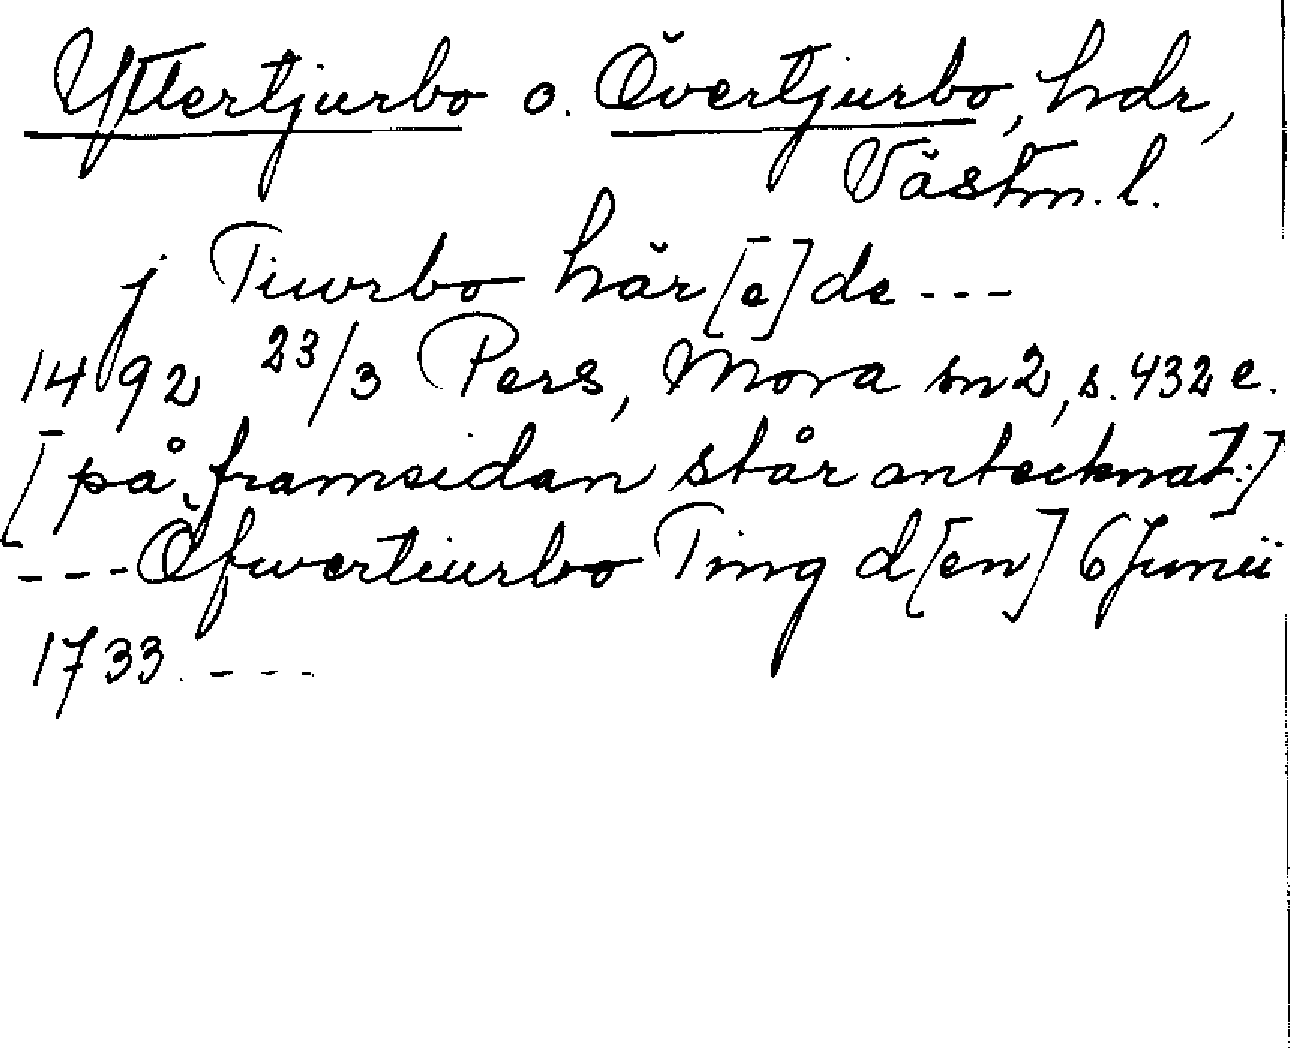 Yttertjurbo o. Övertjurbo, hdr,
Västm. l.
j Tiwrbo här[a]de ---
1492 23/3 Pers, Mora sn 2, s. 432 e.
[på framsidan står antecknat:]
--- Öfwertiurbo Ting d[en] 6 Junii
1733. ---